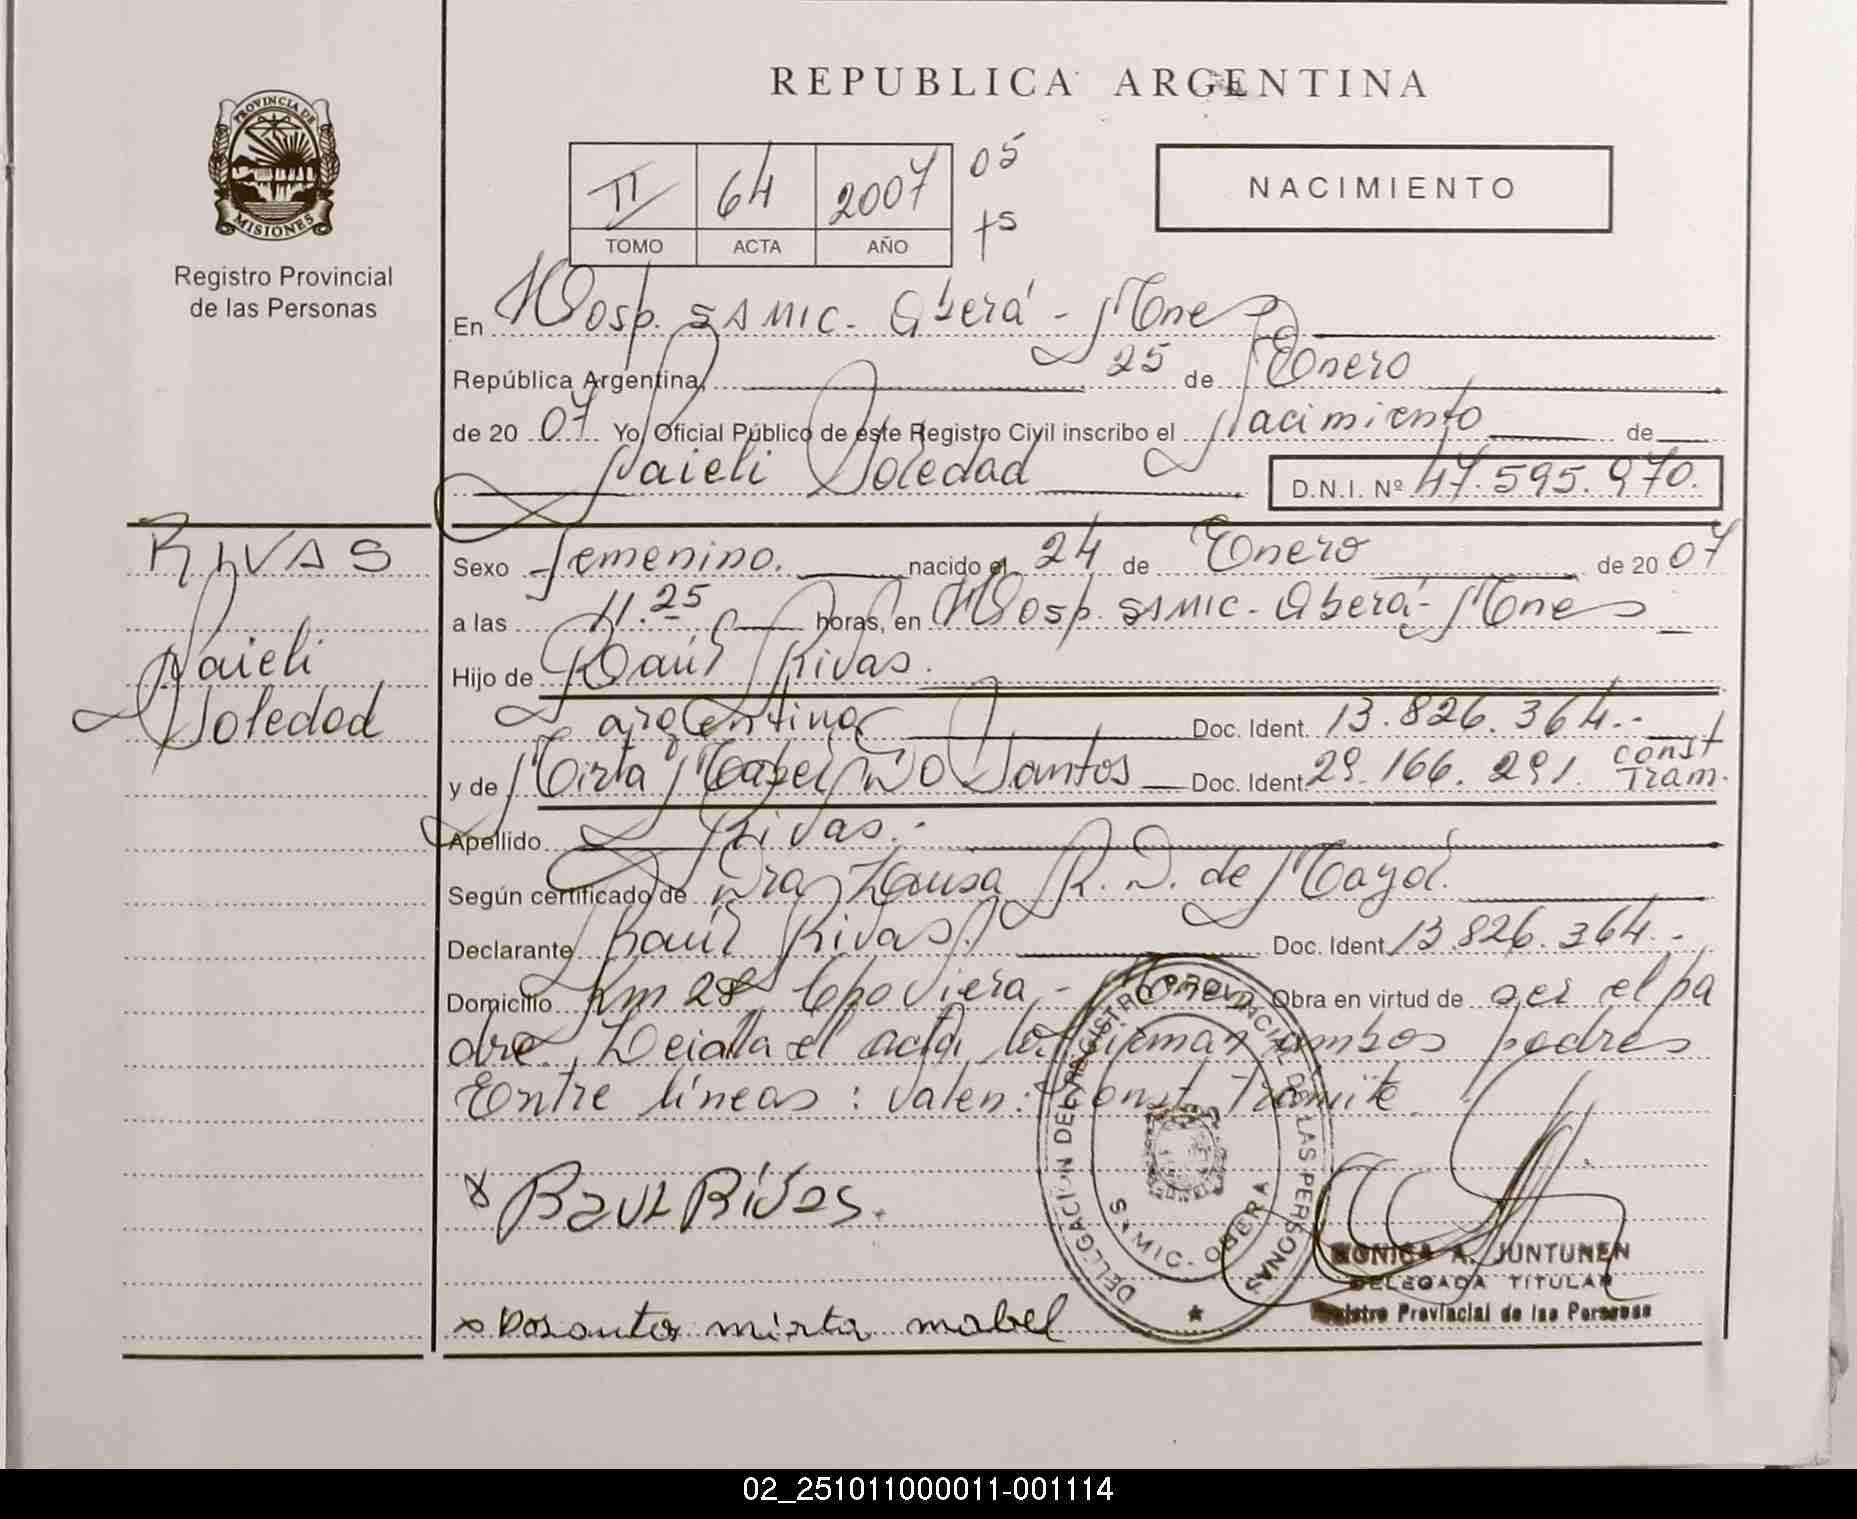 REPUBLICA ARGENTINA
PROVINCIA DE
MISIONES
Registro Provincial
de las Personas
II 64 2007 05
TOMO ACTA AÑO
NACIMIENTO
En Hosp. SAMIC - Oberá - Mnes
República Argentina, 25 de Enero
de 20 07 Yo, Oficial Público de este Registro Civil inscribo el Nacimiento de
Naieli Soledad D.N.I. Nº 47.595.970.
RIVAS
Naieli
Soledad
Sexo femenino. nacido el 24 de Enero de 2007
a las 11.25 horas, en Hosp. SAMIC - Oberá - Mnes
Hijo de Raúl Rivas.
argentino Doc. Ident. 13.826.364.-
y de Mirta Mabel Do Santos Doc. Ident. 29.166.291. const Tram.
Apellido Rivas.-
Según certificado de Dra Luisa R. D. de Mayol.
Declarante Raúl Rivas. Doc. Ident. 13.826.364.-
Domicilio Km 28 Cpo Viera - Mnes Obra en virtud de ser el pa
dre. Leida el acta la firman ambos padres
Entre líneas: valen: const Tramite.
x RAUL RIVAS.
x Dosantos mirta mabel
DELEGACION DEL REGISTRO PROVINCIAL DE LAS PERSONAS
SAMIC - OBERA
MONICA A. JUNTUNEN
DELEGADA TITULAR
Registro Provincial de las Personas
02_251011000011-001114